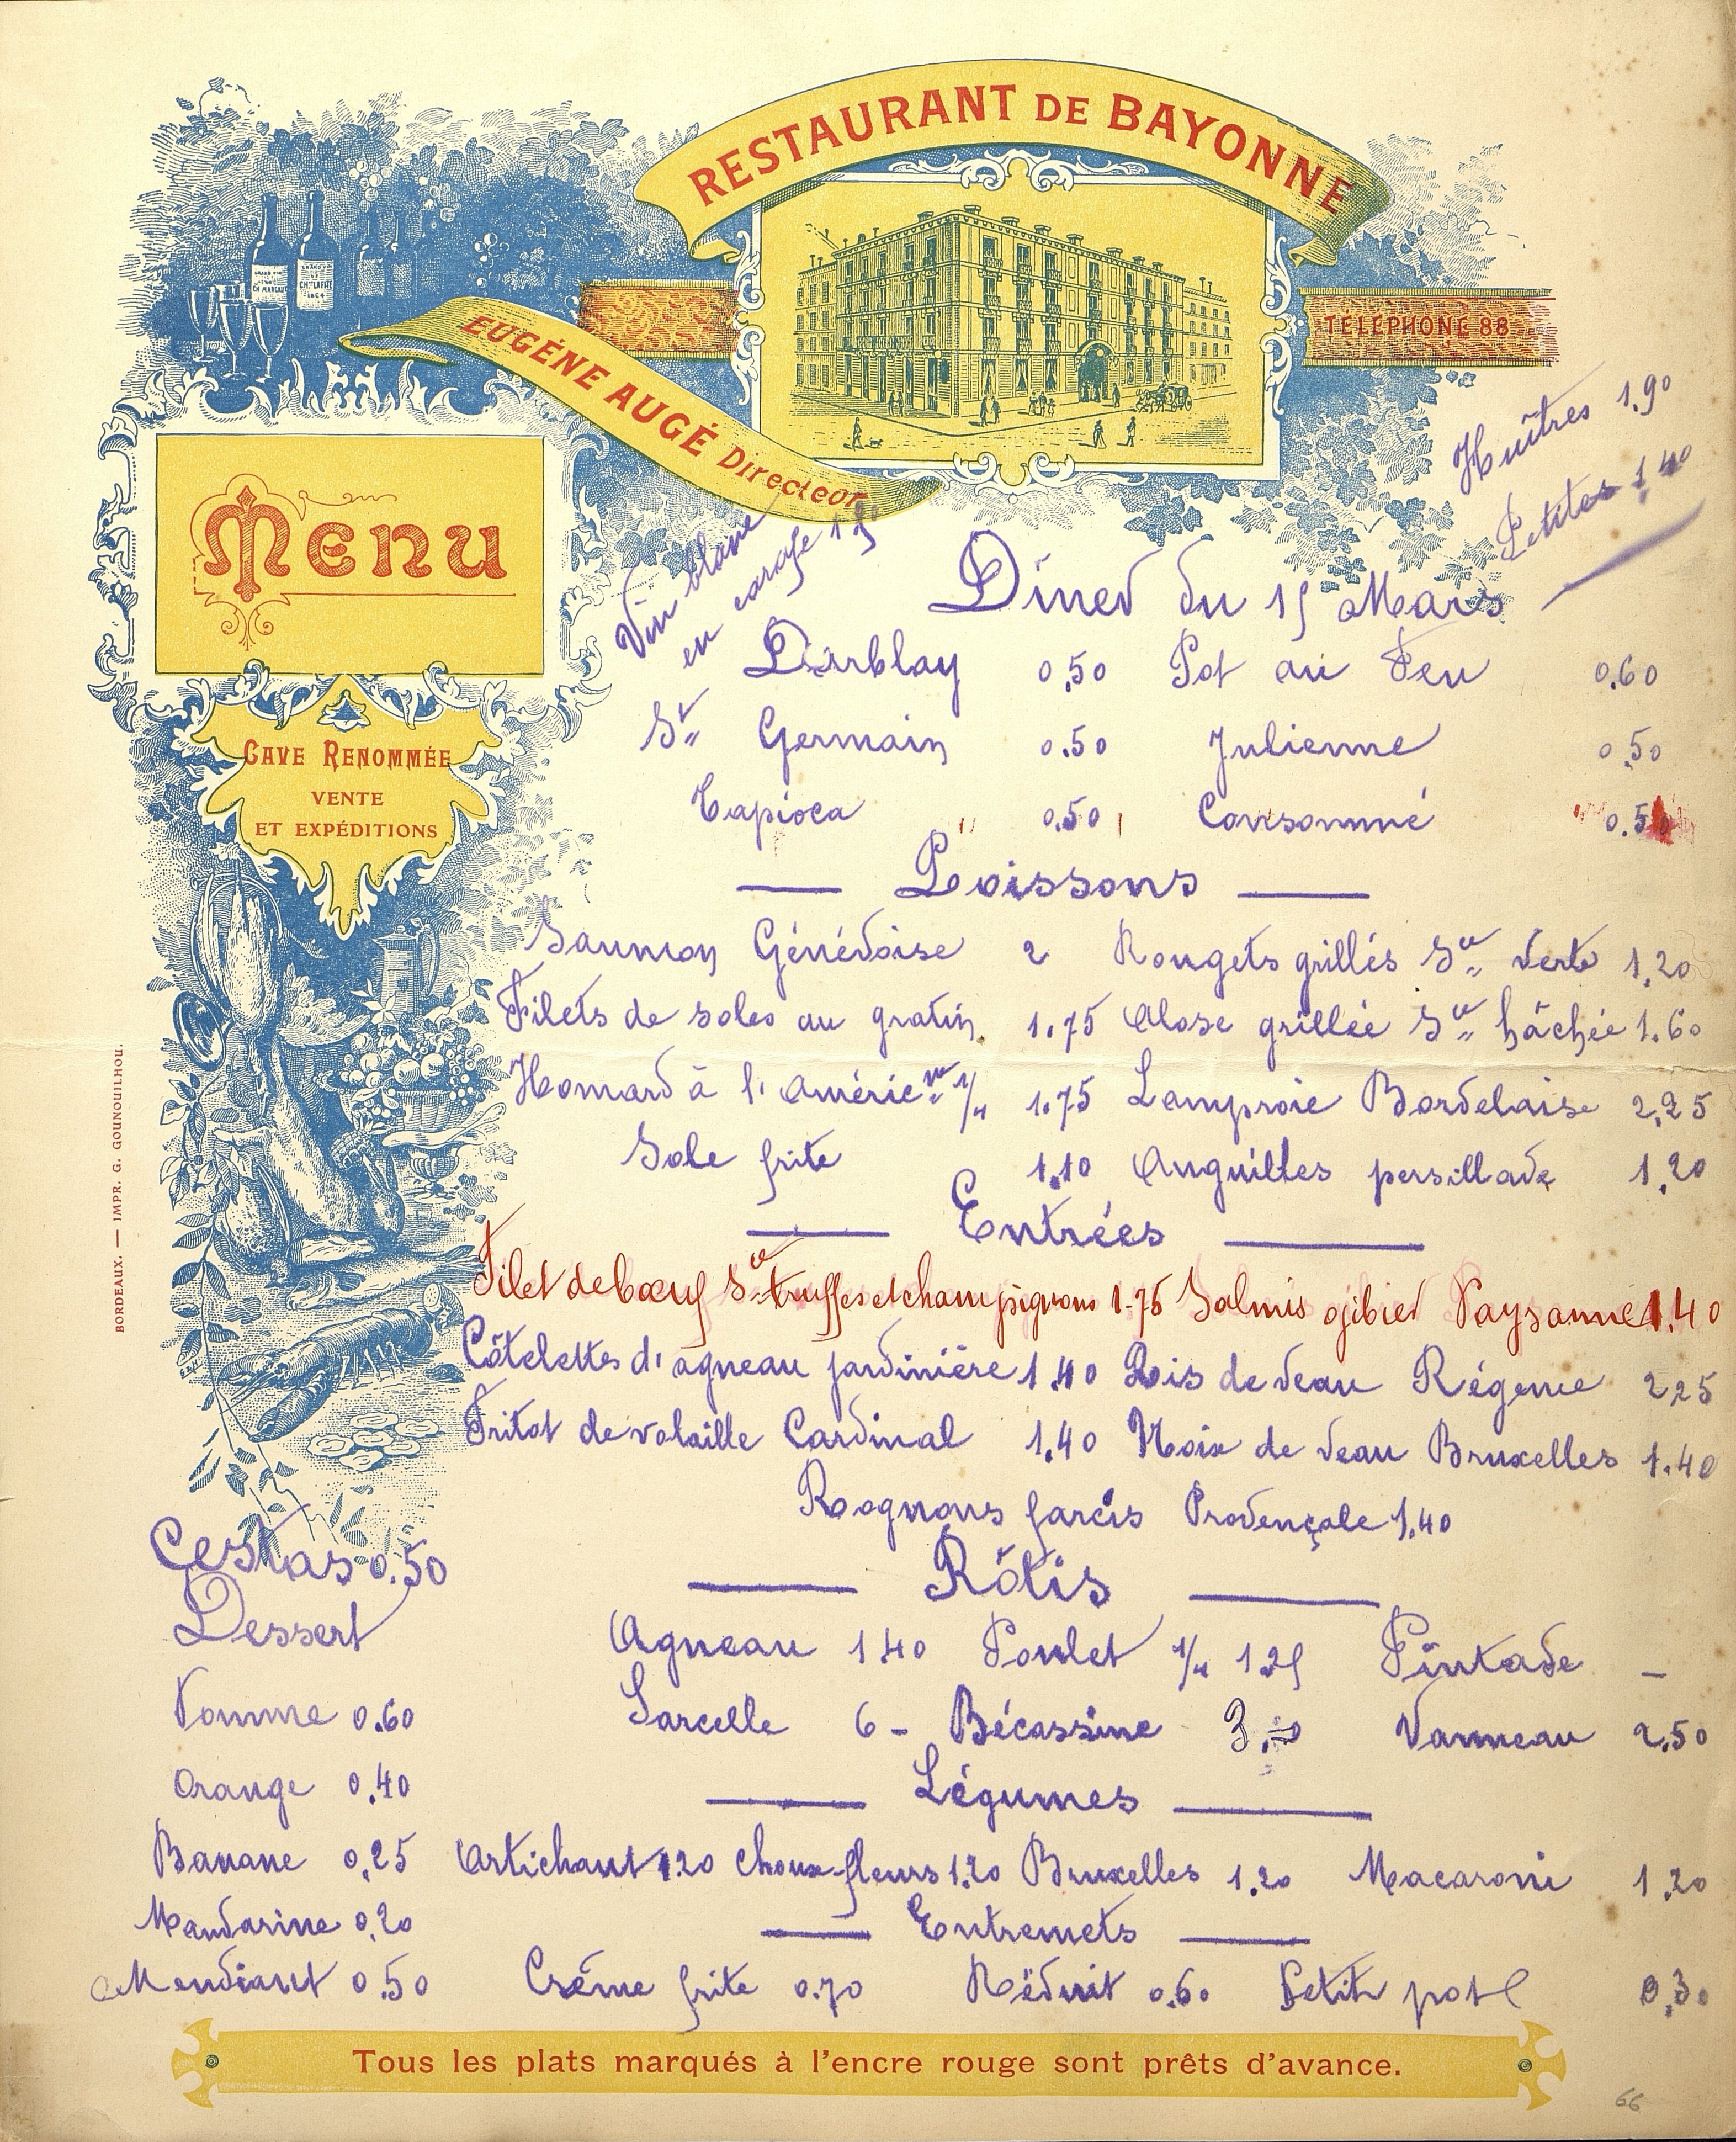 RESTAURANT DE BAYONNE
GRAND VIN
CH. MARGAUX
GRAND VIN
CHAU LAFITE
1864
EUGÈNE AUGÉ Directeur
TÉLÉPHONE 88
Huîtres 1.90
Petites 1.40
Menu
Vin blanc
en carafe
Dîner du 15 Mars
Darblay 0.50 Pot au Feu 0.60
St Germain 0.50 Julienne 0.50
Tapioca 0.50 Consommé 0.50
CAVE RENOMMÉE
VENTE
ET EXPÉDITIONS
Poissons
Saumon Génévoise 2 Rougets grillés Sce verte 1.20
Filets de soles au gratin 1.75 Alose grillée Sce hâchée 1.60
Homard à l'Améric.ne 1/4 1.75 Lamproie Bordelaise 2.25
Sole frite 1.10 Anguilles persillade 1.20
Entrées
Filet de bœuf Sce truffes et champignons 1.75 Salmis gibier Paysanne 1.40
Côtelettes d'agneau jardinière 1.40 Ris de veau Régence 2.25
Fritot de volaille Cardinal 1.40 Noix de veau Bruxelles 1.40
Rognons farcis Provençale 1.40
Rôtis
Agneau 1 40 Poulet 1/4 1.25 Pintade –
Sarcelle 6 – Bécassine 3. Vanneau 2.50
Légumes
Artichaut 1.20 Choux-fleurs 1.20 Bruxelles 1.20 Macaroni 1.20
Entremets
Crême frite 0.70 Réduit 0.60 Petit pot 0.30
Cestas 0.50
Dessert
Pomme 0.60
Orange 0.40
Banane 0.25
Mandarine 0.20
Mendiant 0.50
BORDEAUX. — IMPR. G. GOUNOUILHOU.
Tous les plats marqués à l'encre rouge sont prêts d'avance.
66